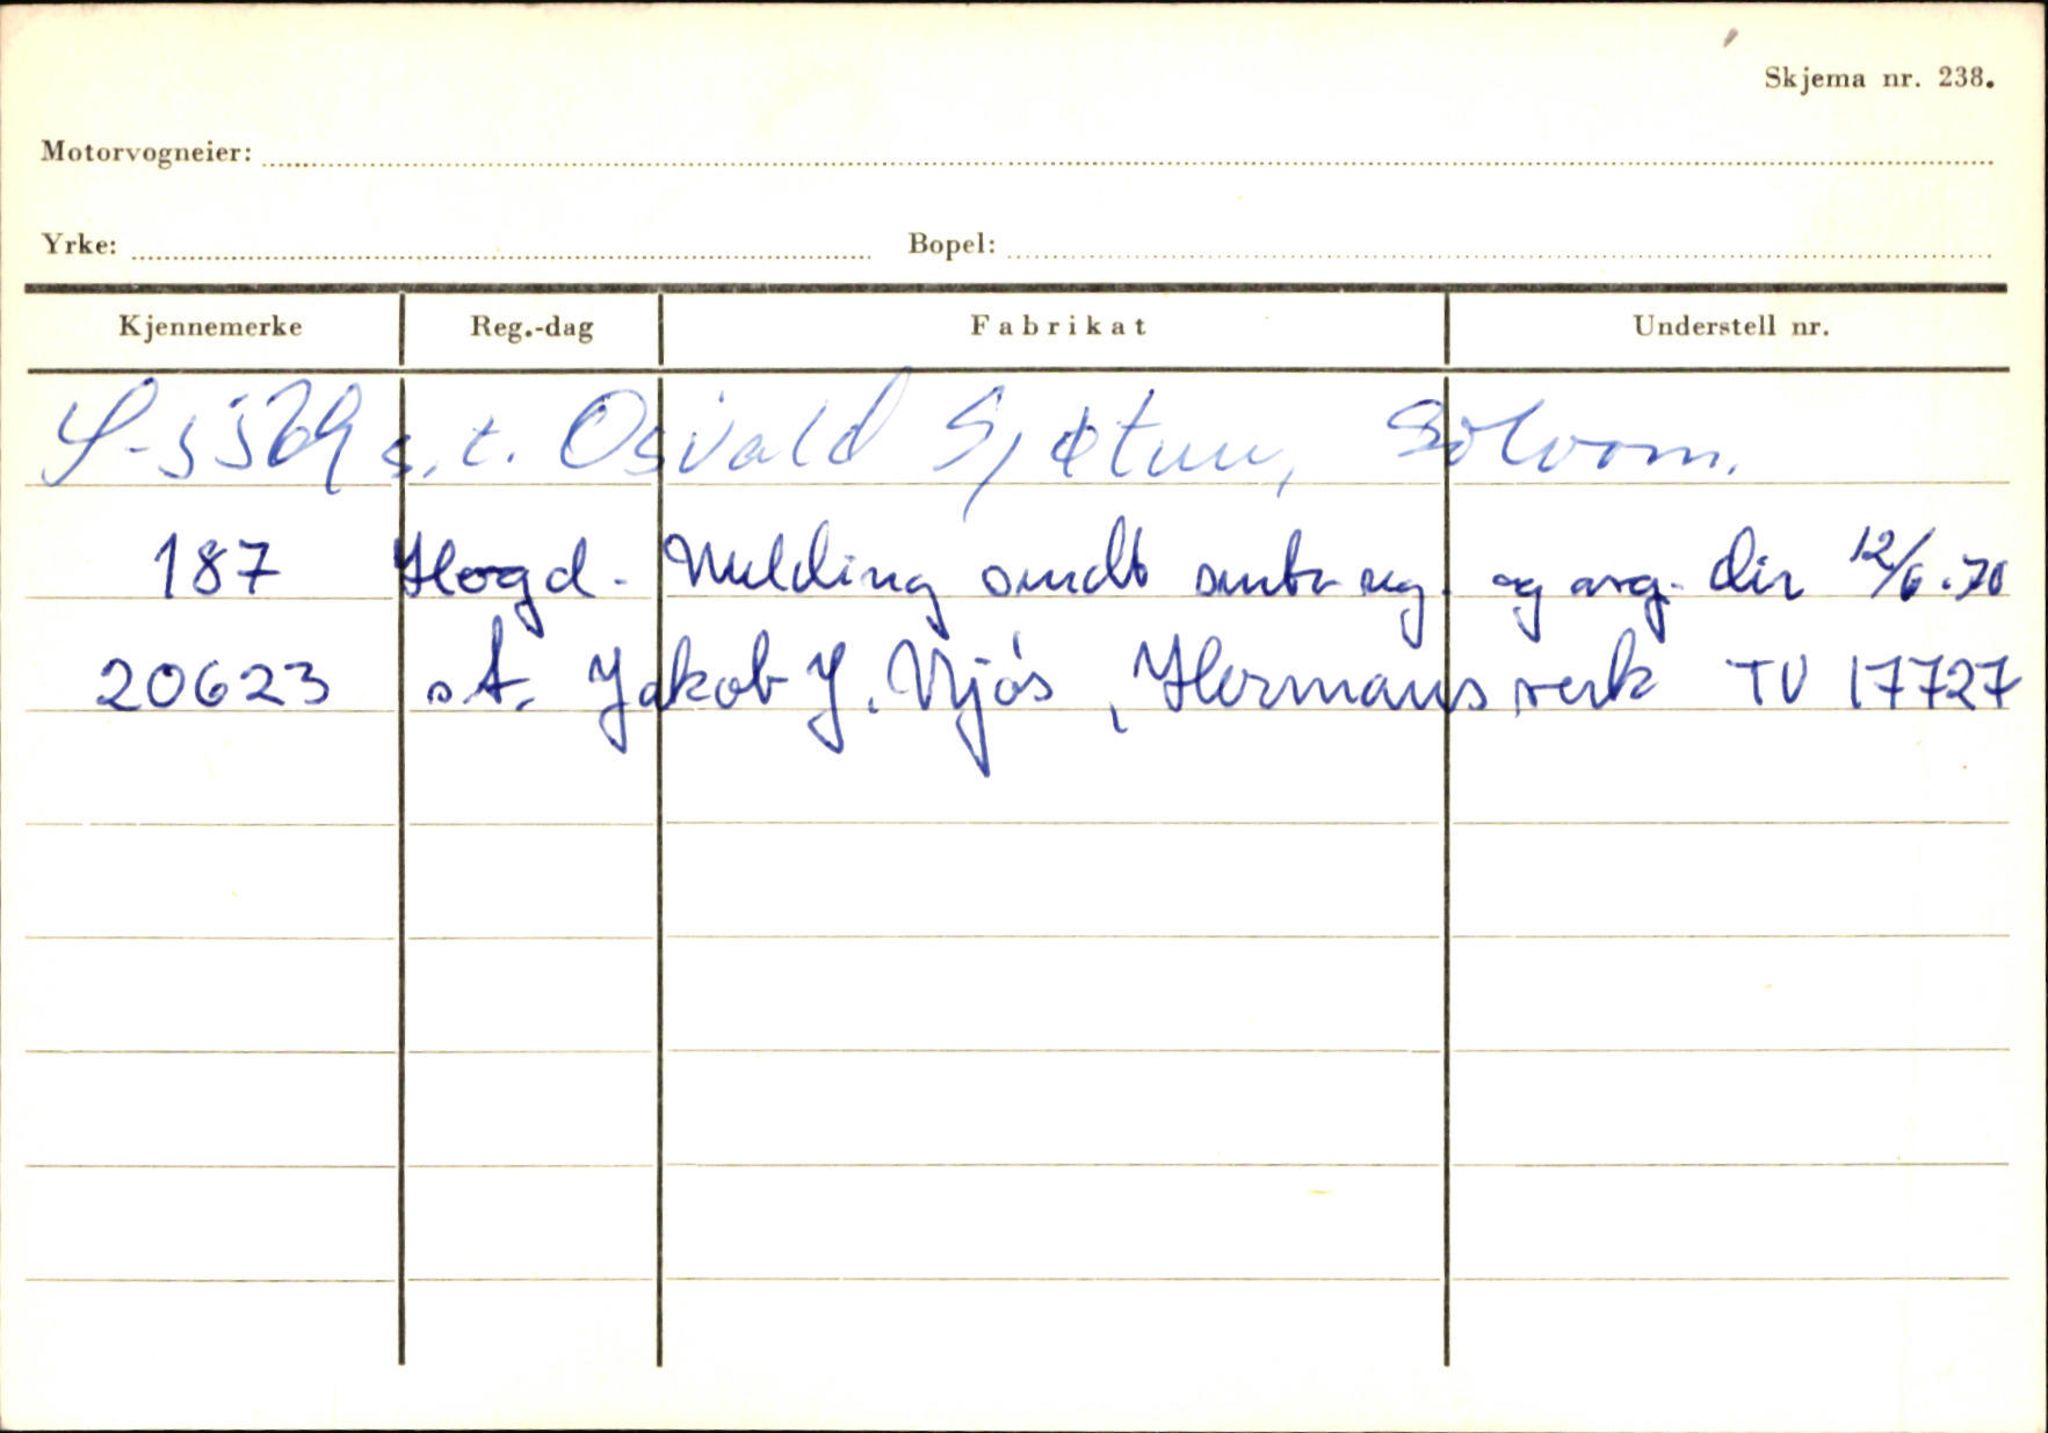 Skjema nr. 238.
Motorvogneier:
Yrke: Bopel:
Kjennemerke Reg.-dag Fabrikat Understell nr.
S-5569 s.t. Osvald Sjøtun, Sølvorn.
187 Hogd. Melding sendt sentr. reg. og avg. dir 12/6.70
20623 s.t. Jakob J. Njøs, Hermansverk TV 17727